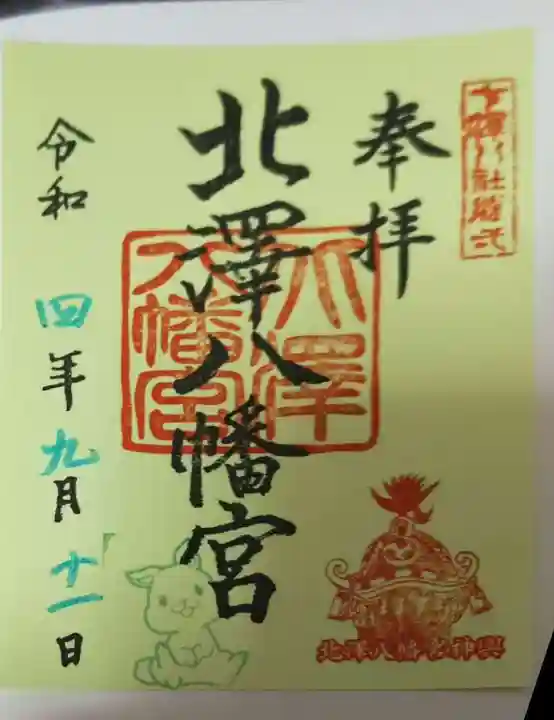 奉拝
北澤八幡宮
北澤
八幡宮
令和四年九月十一日
北澤八幡宮神輿